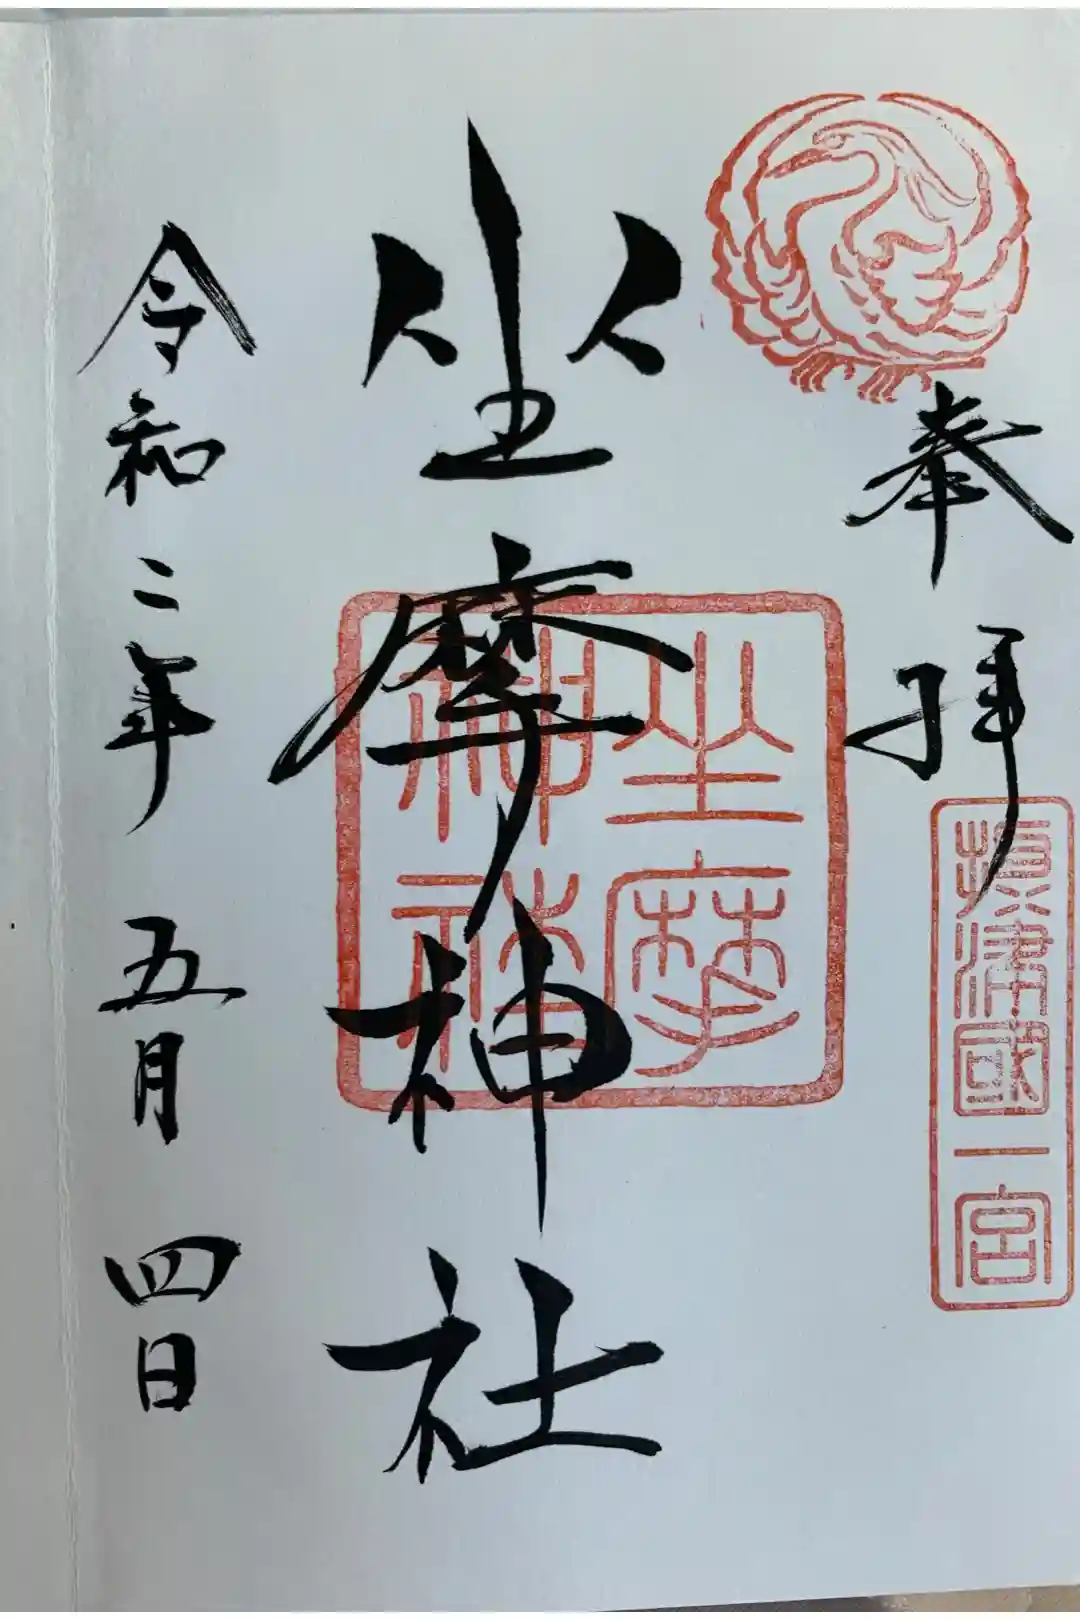 奉拝
攝津國一宮
坐摩神社
坐摩
神社
令和二年 五月 四日